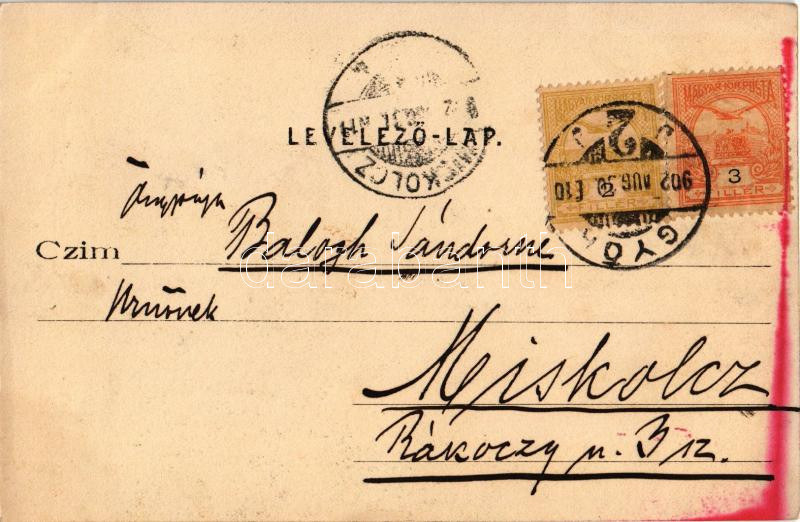 MAGYAR KIR. POSTA
MAGYAR KIR. POSTA
2
3
FILLÉR
MISKOLCZ
LEVELEZŐ-LAP.
GYŐR
902 AUG. 30 E10
Czim
Balogh Sándorné
Urnőnek
Miskolcz
Rákóczy u. 3 sz.
darabanth